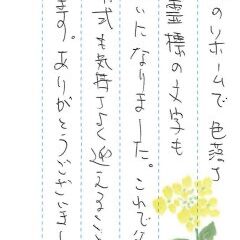 のリホームで 色落ち
霊標の文字も
いになりました。これで
式も気持ちよく迎えるこ
ます。ありがとうございまし